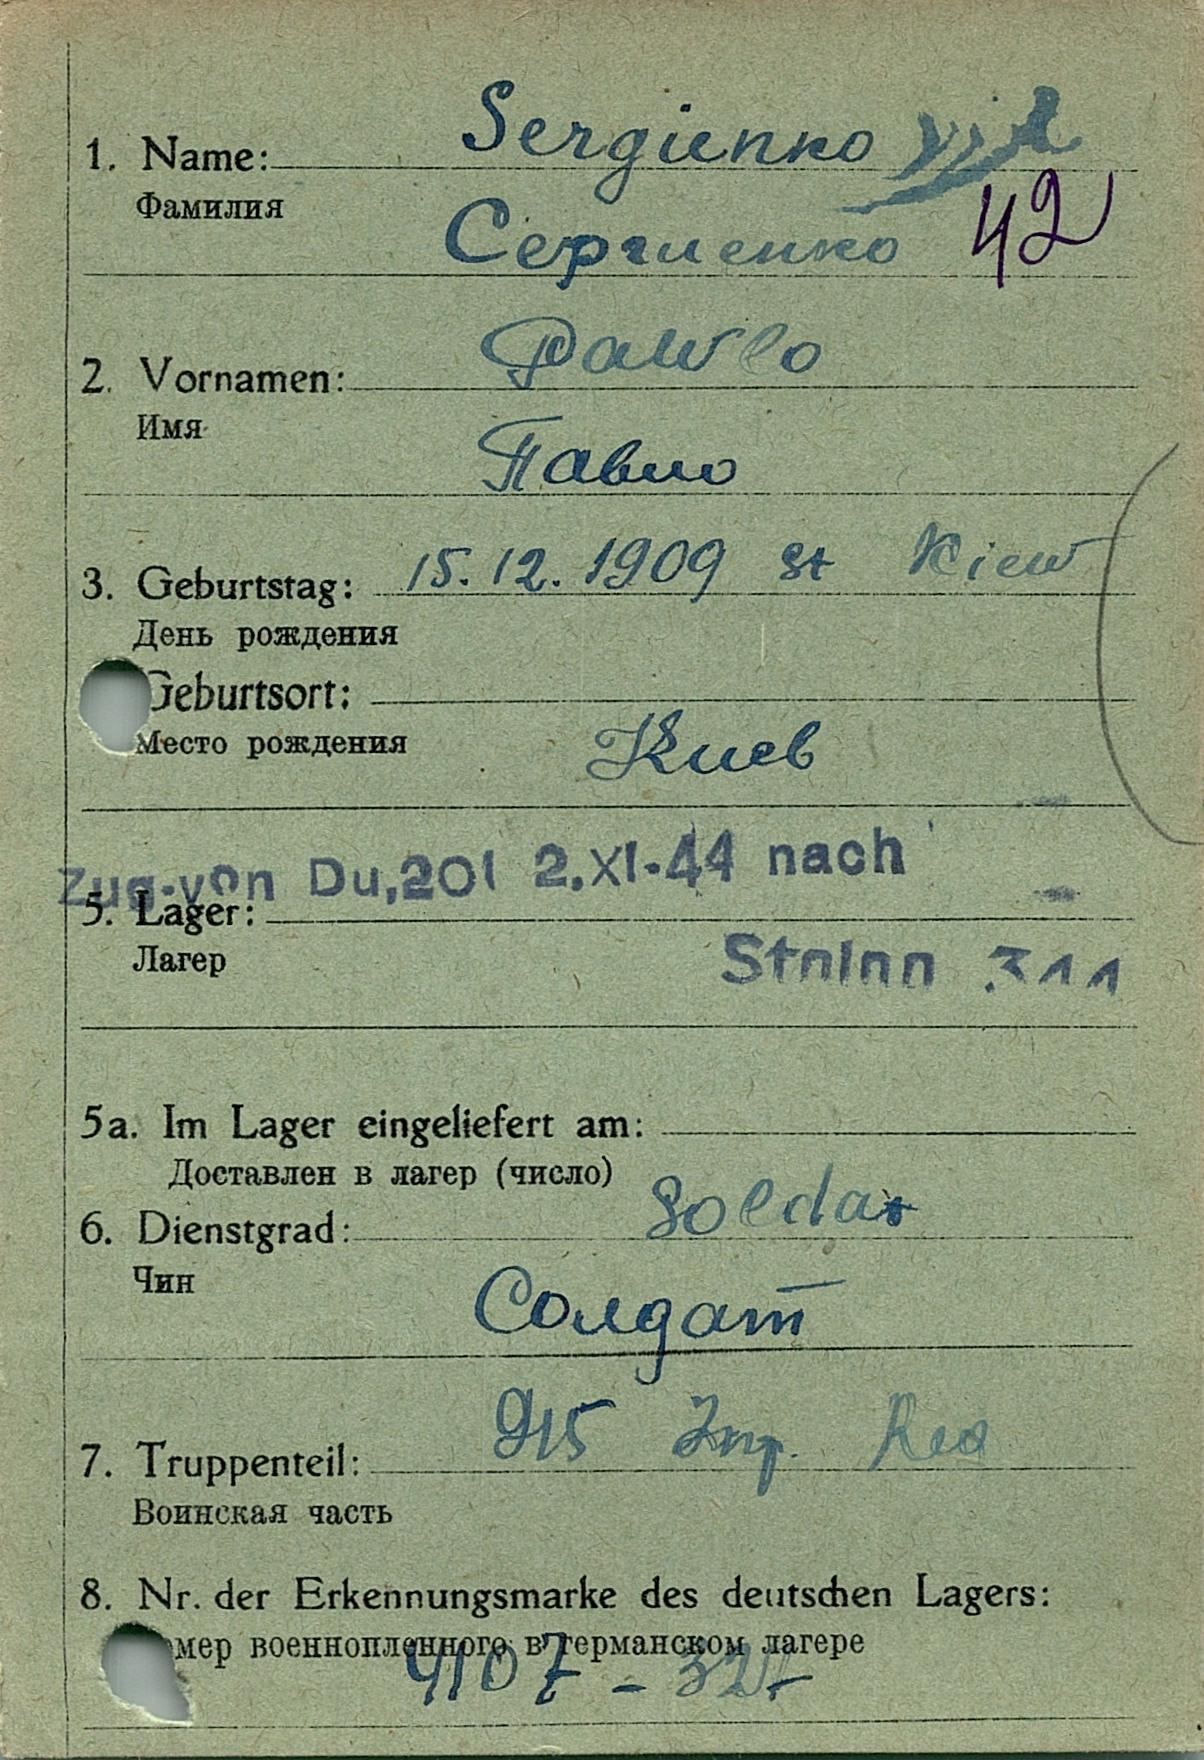 1. Name: Sergienko
Фамилия
Сергиенко 42
2. Vornamen: Pawlo
Имя
Павло
3. Geburtstag: 15.12.1909 St Kiew
День рождения
Geburtsort:
Место рождения
Киев
Zug-von Du,201 2.XI-44 nach
5. Lager:
Лагер
311
5a. Im Lager eingeliefert am:
Доставлен в лагер (число)
6. Dienstgrad: Soldat
Чин
Солдат
7. Truppenteil: 915
Воинская часть
8. Nr. der Erkennungsmarke des deutschen Lagers:
мер военнопленного в германском лагере
4107 -